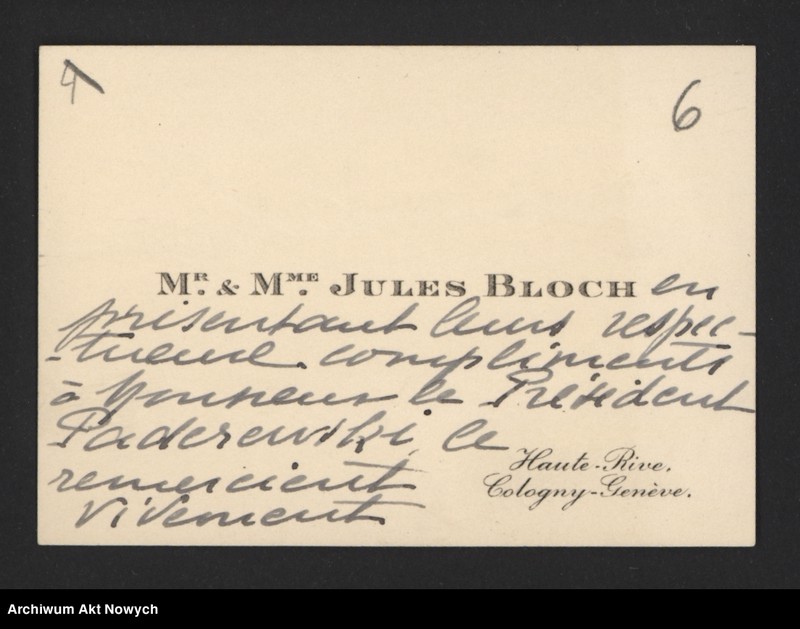 4
6
Mr. & Mme. Jules Bloch en
présentant leurs respec-
-tueux compliments
à Monsieur le Président
Paderewski, le
remercient
vivement
Haute-Rive.
Cologny-Genève.
Archiwum Akt Nowych